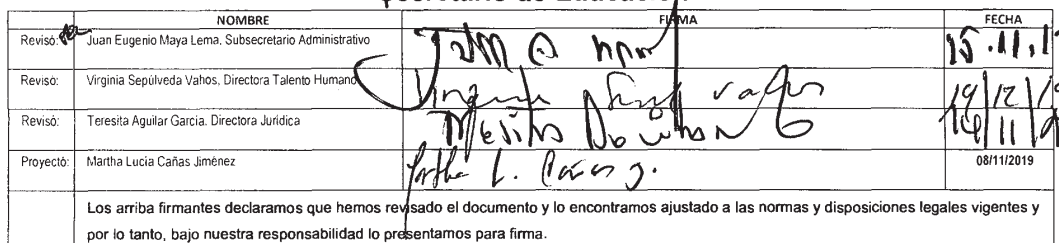 Secretario de Educación
NOMBRE FIRMA FECHA
Revisó: Juan Eugenio Maya Lema. Subsecretario Administrativo 15.11.1
Revisó: Virginia Sepúlveda Vahos, Directora Talento Humano
Revisó: Teresita Aguilar García. Directora Jurídica
Proyectó: Martha Lucia Cañas Jiménez Martha L. Cañas J. 08/11/2019
Los arriba firmantes declaramos que hemos revisado el documento y lo encontramos ajustado a las normas y disposiciones legales vigentes y
por lo tanto, bajo nuestra responsabilidad lo presentamos para firma.